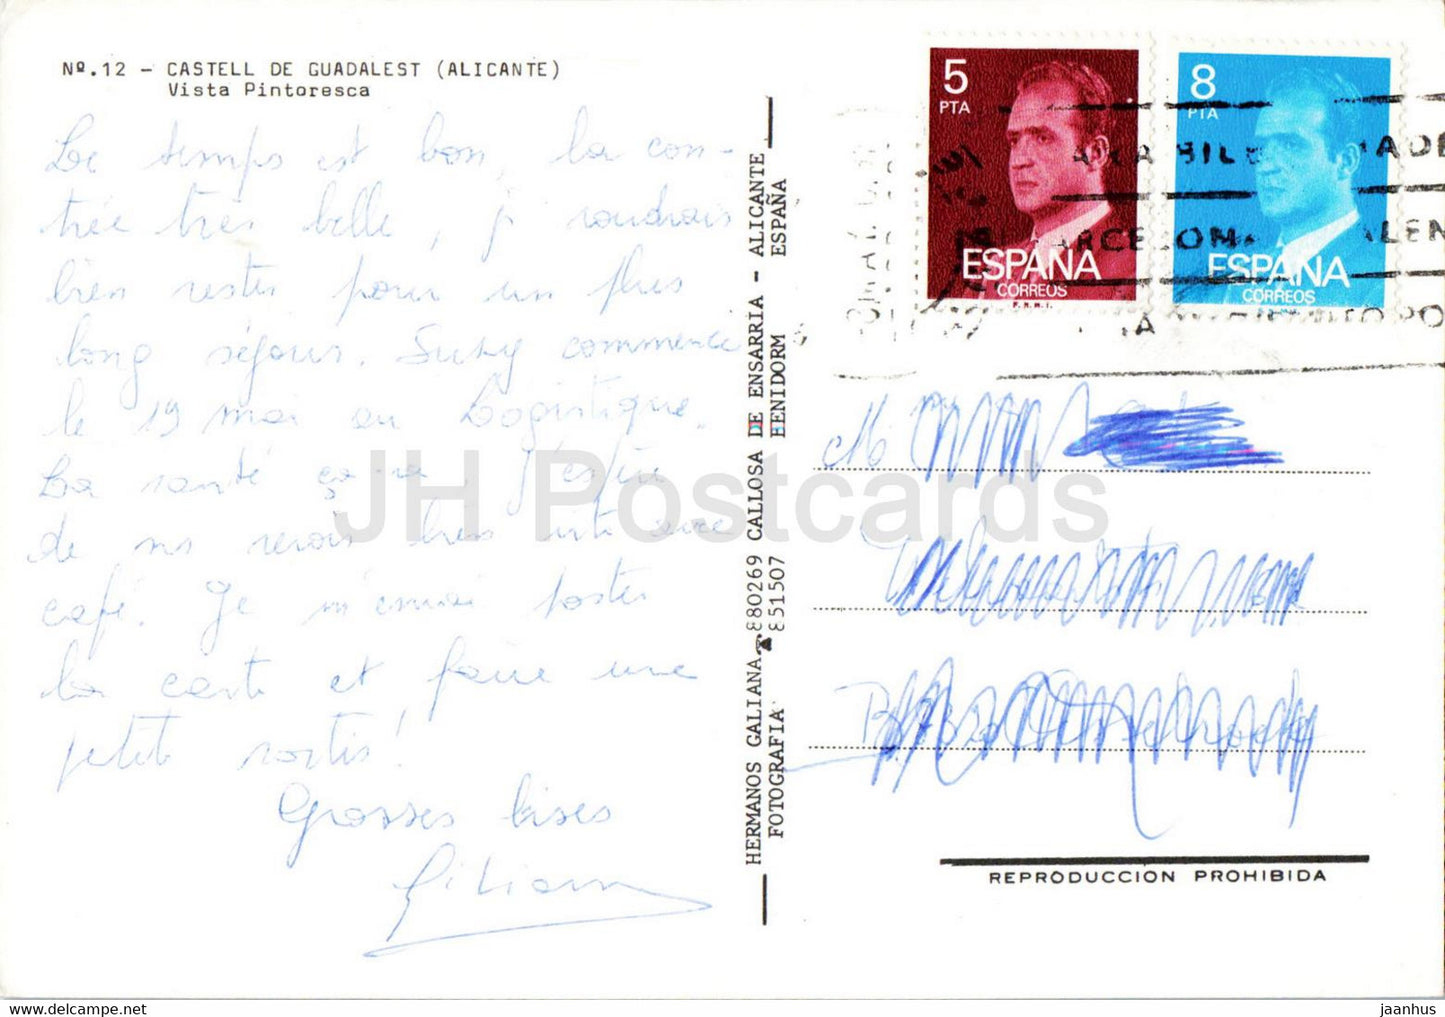 Nº.12 - CASTELL DE GUADALEST (ALICANTE)
Vista Pintoresca
Le temps est bon, la con-
trée très belle, j voudrais
bien rester pour un plus
long séjour. Suzy commence
le 19 mai en Logistique.
La santé ça va. J'espère
de vs revoir très vite avec
café. Je m'en vai poster
la carte et faire une
petite sortie!
Grosses bises
Liliane
HERMANOS GALIANA ☎ 880269 CALLOSA DE ENSARRIA - ALICANTE
FOTOGRAFIA 851507 HENIDORM ESPAÑA
5
PTA
ESPAÑA
CORREOS
F.N.M.T.
8
PTA
ESPAÑA
CORREOS
BILB
BARCELONA
M
REPRODUCCION PROHIBIDA
JH Postcards
jaanhus